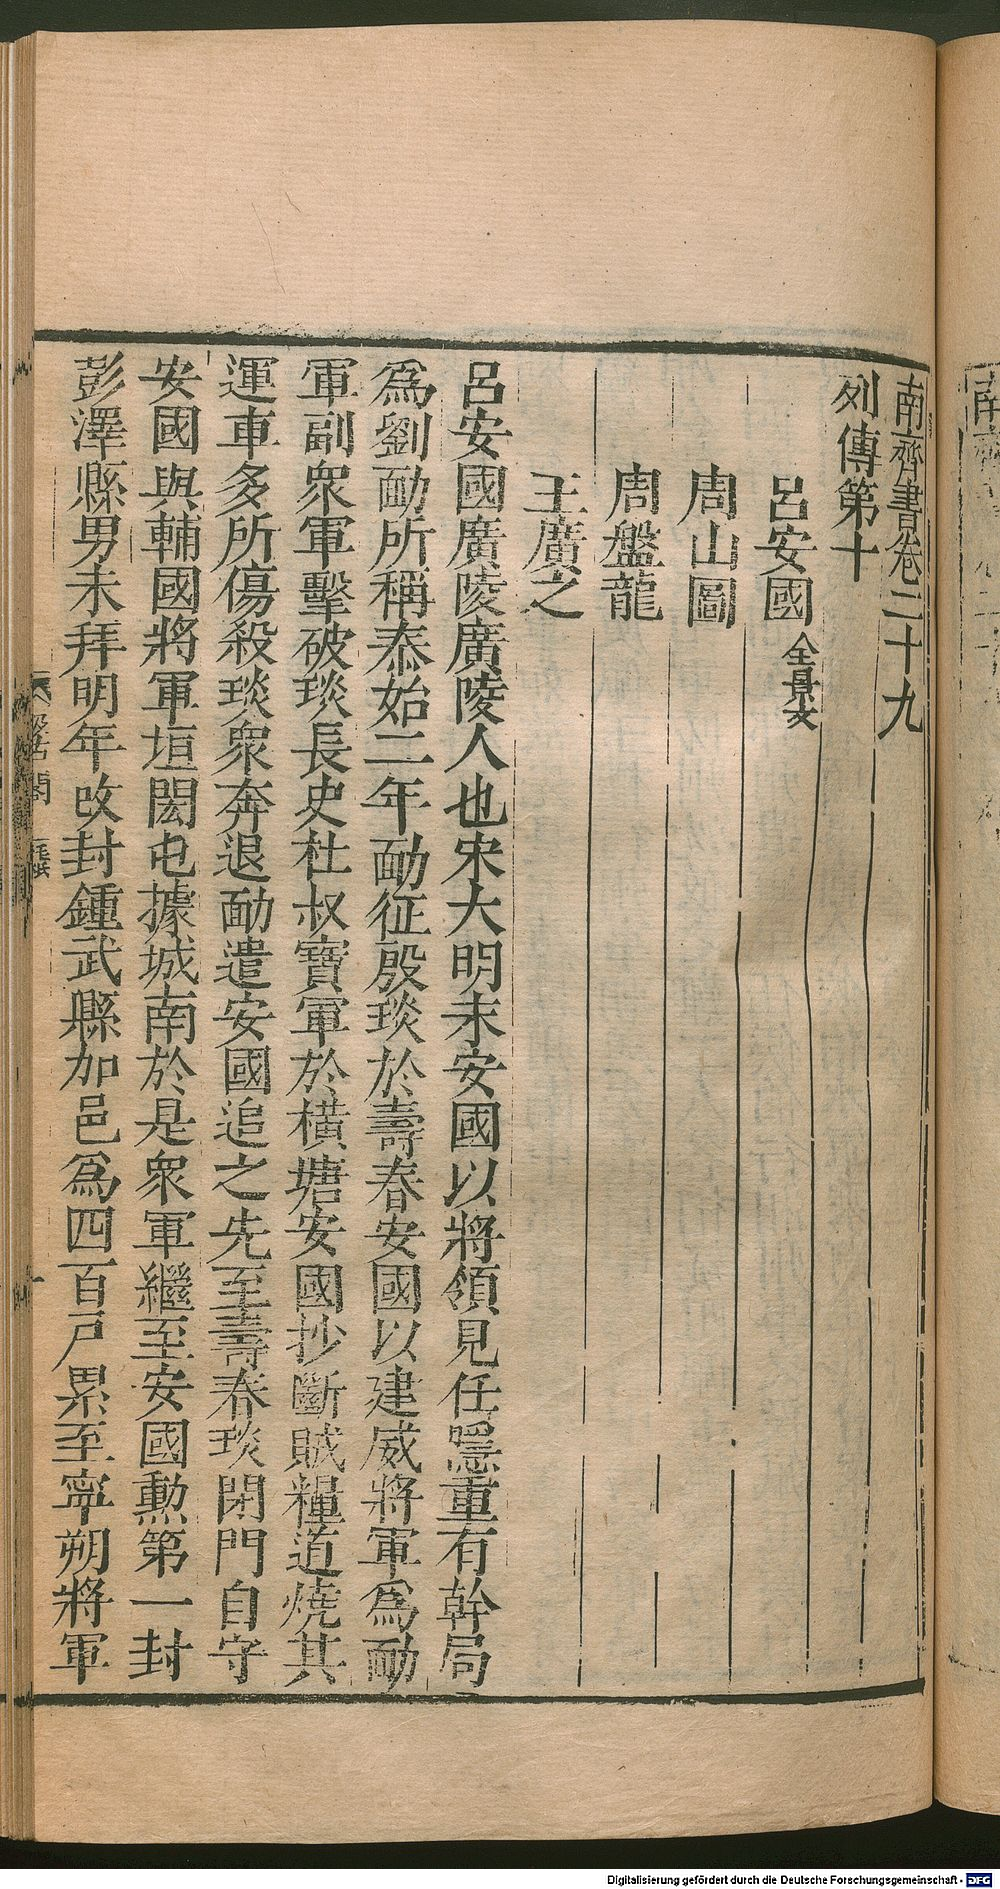 南齊書卷二十九
列傳第十
呂安國 全景文
周山圖
周盤龍
王廣之
呂安國廣陵廣陵人也宋大明末安國以將領見任隱重有幹局
爲劉勔所稱泰始二年勔征殷琰於壽春安國以建威將軍爲勔
軍副衆軍擊破琰長史杜叔寶軍於橫塘安國抄斷賊糧道燒其
運車多所傷殺琰衆奔退勔遣安國追之先至壽春琰閉門自守
安國與輔國將軍垣閎屯據城南於是衆軍繼至安國勳第一封
彭澤縣男未拜明年改封鍾武縣加邑爲四百戸累至寧朔將軍
Digitalisierung gefördert durch die Deutsche Forschungsgemeinschaft - DFG